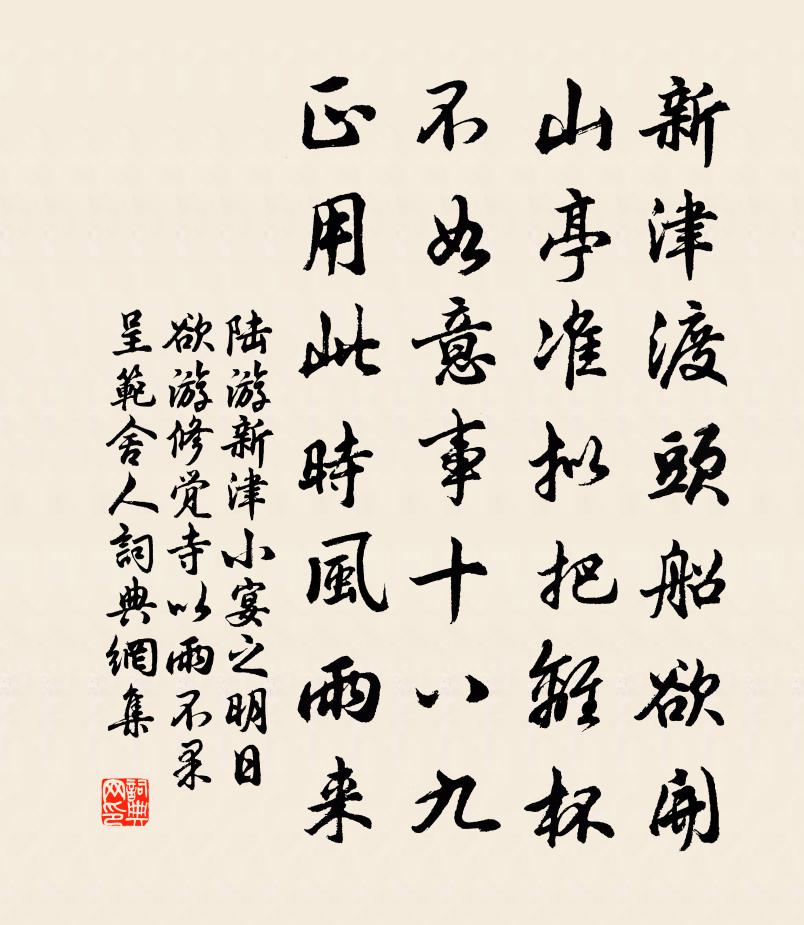 新津渡頭船欲開
山亭准拟把離杯
不如意事十八九
正用此時風雨来
陆游新津小宴之明日
欲游修觉寺以雨不果
呈範舍人詞典網集
詞典网印